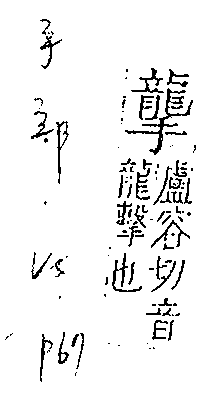 盧容切音
龍擊也
手部. p67